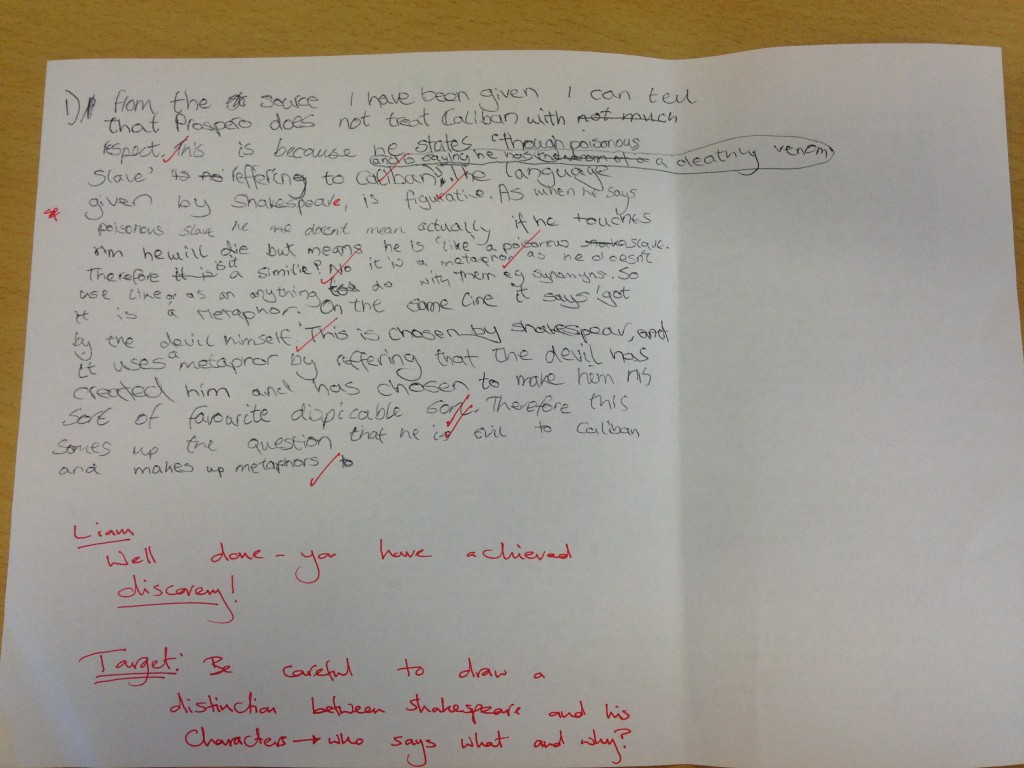 1) from the source I have been given I can tell
that Prospero does not treat Caliban with not much
respect. This is because he states, 'though poisonous
and is saying he has a deathly venom
slave' is reffering to Caliban. The language
given by Shakespeare, is figurative. As when he says
poisonous slave he doesnt mean actually if he touches
him he will die but means he is 'like' a poisonous slave.
Therefore is it a similie? No it is a metaphor as he doesnt
use like or as an anything to do with them eg synonyms. So
it is a metaphor. On the same line it says 'got
by the devil himself.' This is chosen by shakespear, and
it uses a metaphor by reffering that the devil has
created him and has chosen to make him his
sort of favourite dispicable sort. Therefore this
somes up the question that he is evil to Caliban
and makes up metaphors to
Liam
Well done - you have achieved
discovery!
Target: Be careful to draw a
distinction between Shakespeare and his
Characters → who says what and why?